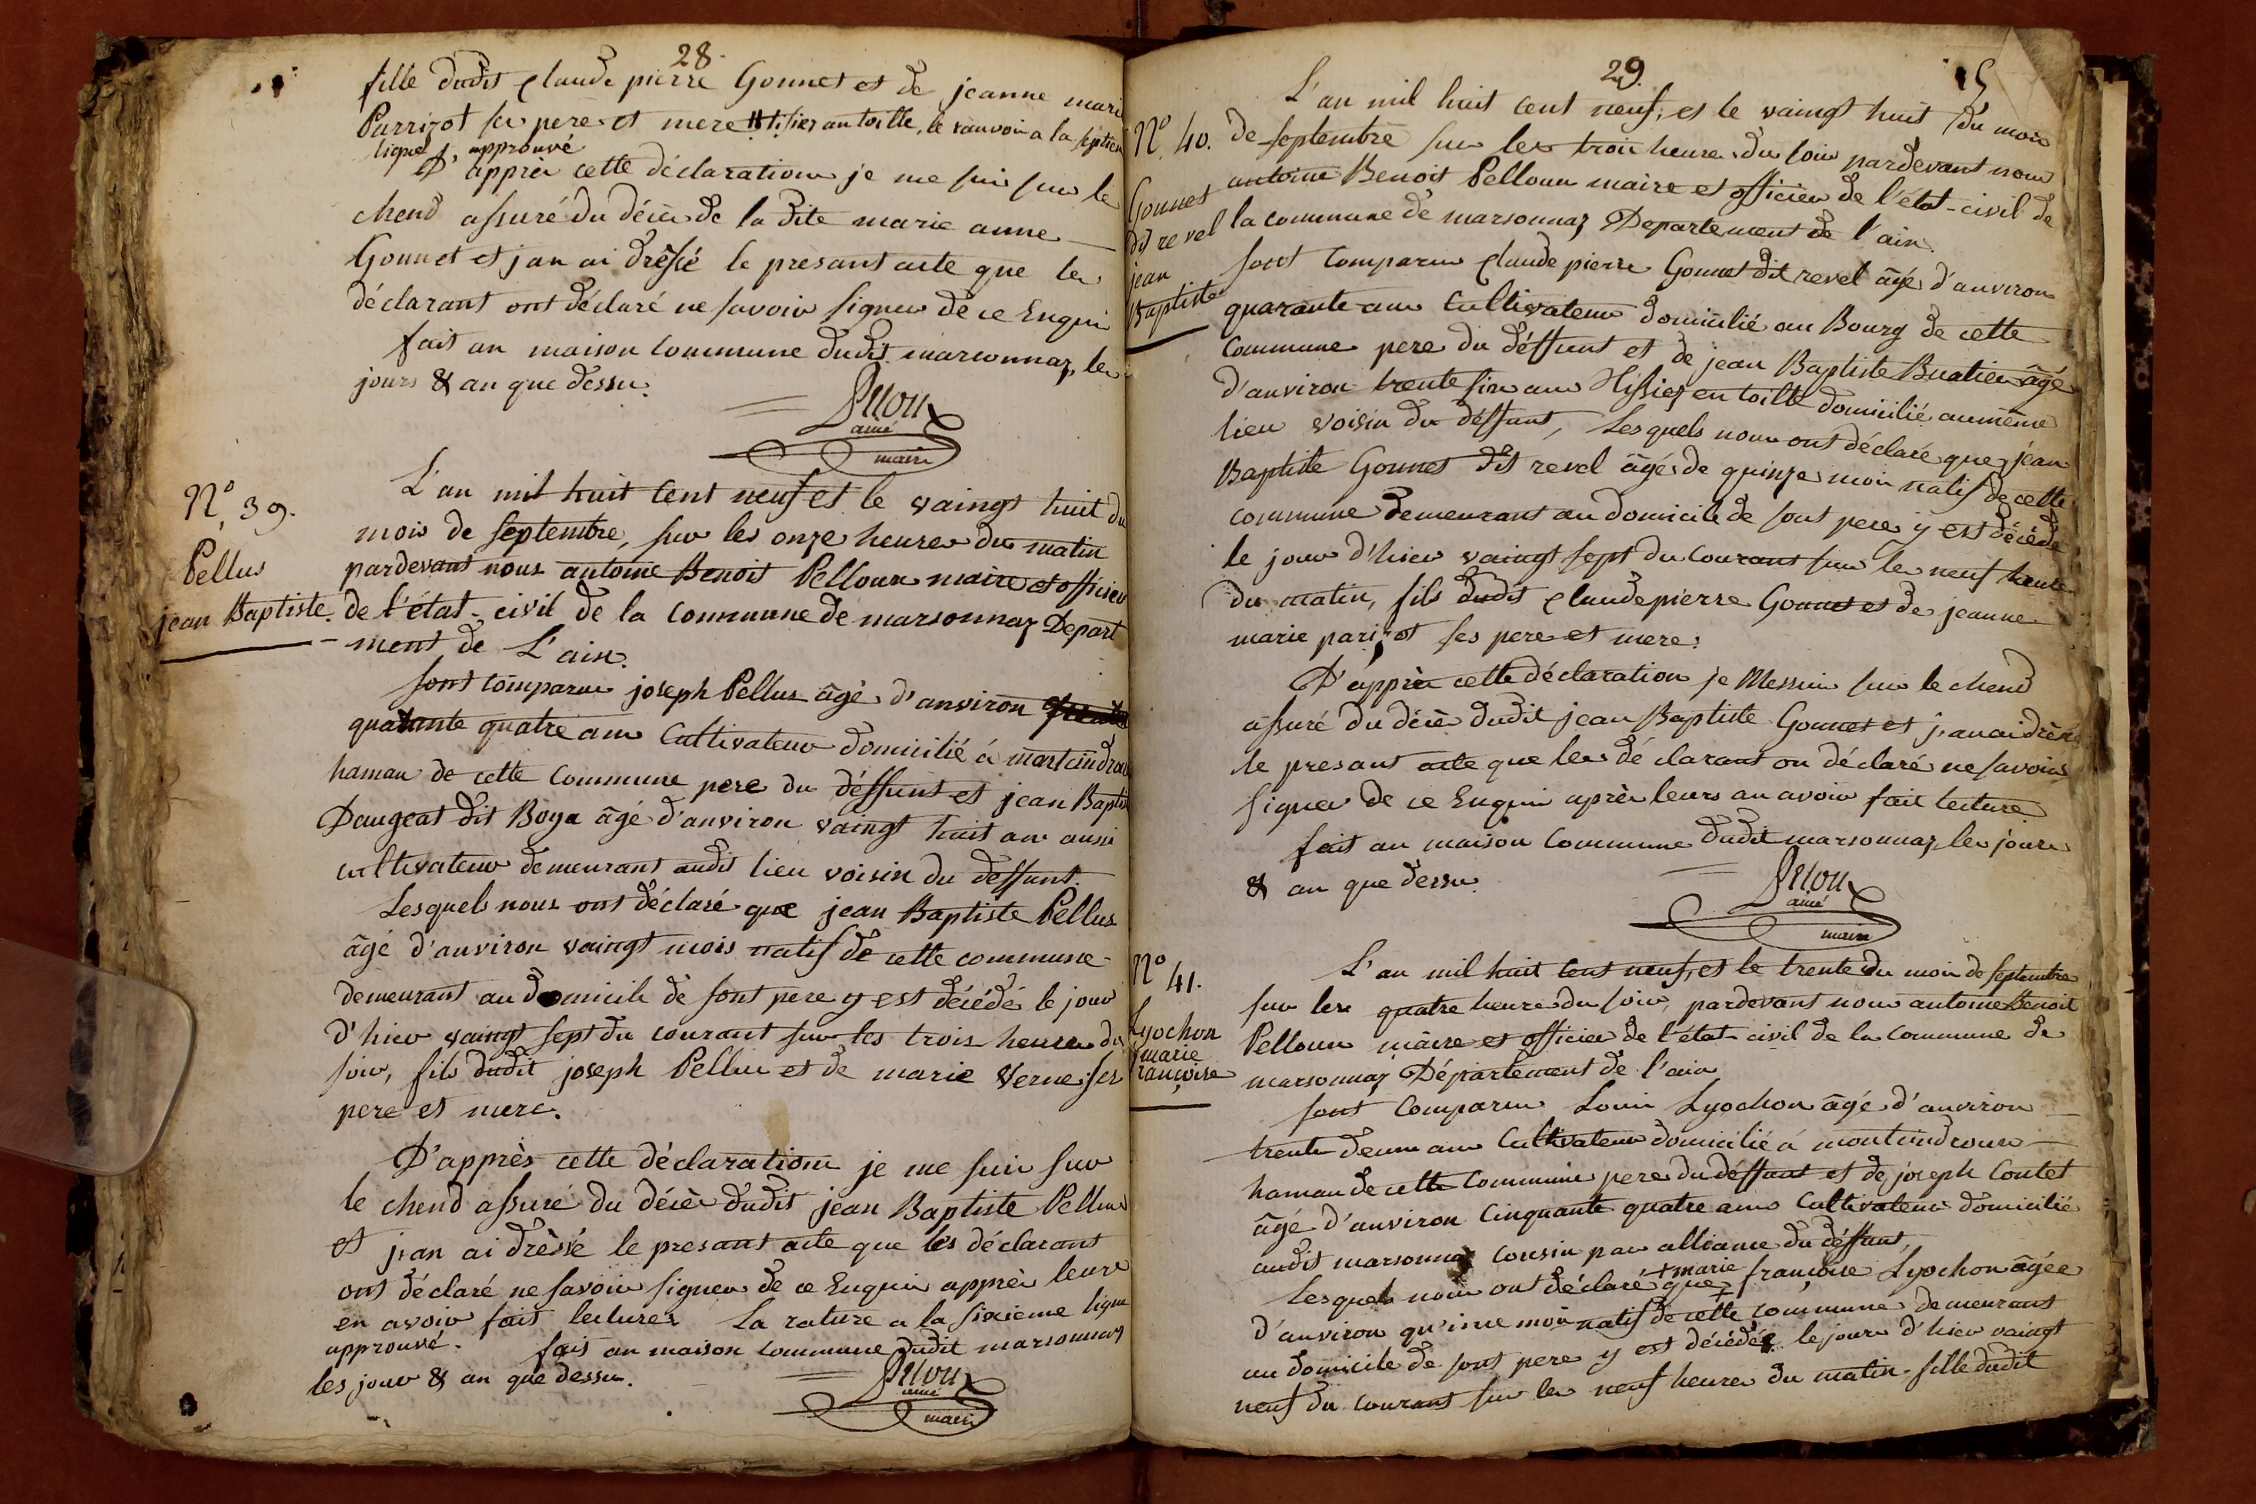 28.
fille dudit claude pierre Gonnet et de jeanne mari
Parrizot ses pere et mere # tisier an toille, le ranvoi a la septiem
ligne approuvé
D'apprèr cette déclaration je me suis sur le
chend assuré du décèr de la dite marie anne
Gonnet et j'an ai drèssé le presant acte que les
déclarant ont déclaré ne savoir signer de ce Enquir
fait an maison commune dudit marsonnaz, les
jours & an que dessu.
Pelloux
ainé
maire
N° 39.
Pellus
jean Baptiste.
L'an mil huit cent neuf et le vaingt huit du
mois de septembre, sur les onze heures du matin
pardevant nous antoine Benoit Pelloux maire et officier
de l'état-civil de la commune de marsonnaz Depart
-ment de L'ain.
sont comparu joseph Pellus âgé d'anviron
quarante quatre ans Cultivateur domicilié à montcindrou
hamau de cette Commune pere du déffunt et jean Baptis
Daugeat dit Boya âgé d'anviron vaingt huit an aussi
cultivateur demeurant audit lieu voisin du deffunt.
Lesquels nous ont déclaré que jean Baptiste Pellus
âgé d'anviron vaingt mois natif de cette commune
demeurant au domicile de sont pere y est décédé le jour
d'hier vaingt sept du courant sur les trois heures du
soir, fils dudit joseph Pellus et de marie Verne ses
pere et mere.
D'apprès cette déclaration je me suis sur
le chend assuré du décèr dudit jean Baptiste Pellus
et j'an ai drèssé le presant acte que les déclarant
ont déclaré ne savoir signer de ce Enquir apprèr leurs
en avoir fait lectures La rature a la sixième ligne
approuvé. fait an maison commune dudit marsonnaz
les jour & an que dessu.
Pelloux
ainé
maire
29.
15
N° 40.
Gonnet
dit revel
jean
Baptiste
L'an mil huit cent neuf, et le vaingt huit du mois
de septembre sur les trois heures du soir pardevant nous
antoine Benoit Pelloux maire et officier de l'état-civil de
la commune de marsonnaz Departement de l'ain.
sont comparu claude pierre Gonnet dit revel âgé d'anviron
quarante ans Cultivateur domicilié au Bourg de cette
Commune pere du déffunt et de jean Baptiste Buatier âgé
d'anviron trente six ans Tissier en toille domicilié au même
lieu voisin du déffunt, Lesquels nous ont déclaré que jean
Baptiste Gonnet dit revel âgé de quinze mois natif de cette
commune demeurant au domicile de sont pere y est décédé
le jour d'hier vaingt sept du courant sur les neuf heures
du matin, fils dudit claude pierre Gonnet et de jeanne
marie parizot ses pere et mere.
D'apprèr cette déclaration je Messuis sur le chend
assuré du décèr dudit jean Baptiste Gonnet et j'an ai drèssé
le presant acte que les déclarant on déclaré ne savoir
signer de ce Enquir aprèr leurs an avoir fait lecture
fait an maison commune dudit marsonnaz les jours
& an que dessu.
Pelloux
ainé
maire
N° 41.
Lyochon
marie
françoise
L'an mil huit cent neuf, et le trente du mois de septembre
sur les quatre heures du soir, pardevant nous antoine Benoit
Pelloux maire et officier de l'état-civil de la commune de
marsonnaz Département de l'ain
sont comparu Louis Lyochon âgé d'anviron
trente deux ans Cultivateur domicilié á montcindroux
hamau de cette Commune pere du déffunt et de joseph Coulet
âgé d'anviron Cinquante quatre ans Cultivateur domicilié
audit marsonnaz cousin par alliance du déffunt,
+ marie
Lesquels nous ont déclaré que + françoise Lyochon âgée
d'anviron quinze mois natif de cette commune demeurant
au domicile de sont pere y est décédée le jour d'hier vaingt
neuf du courant sur les neuf heures du matin fille dudit